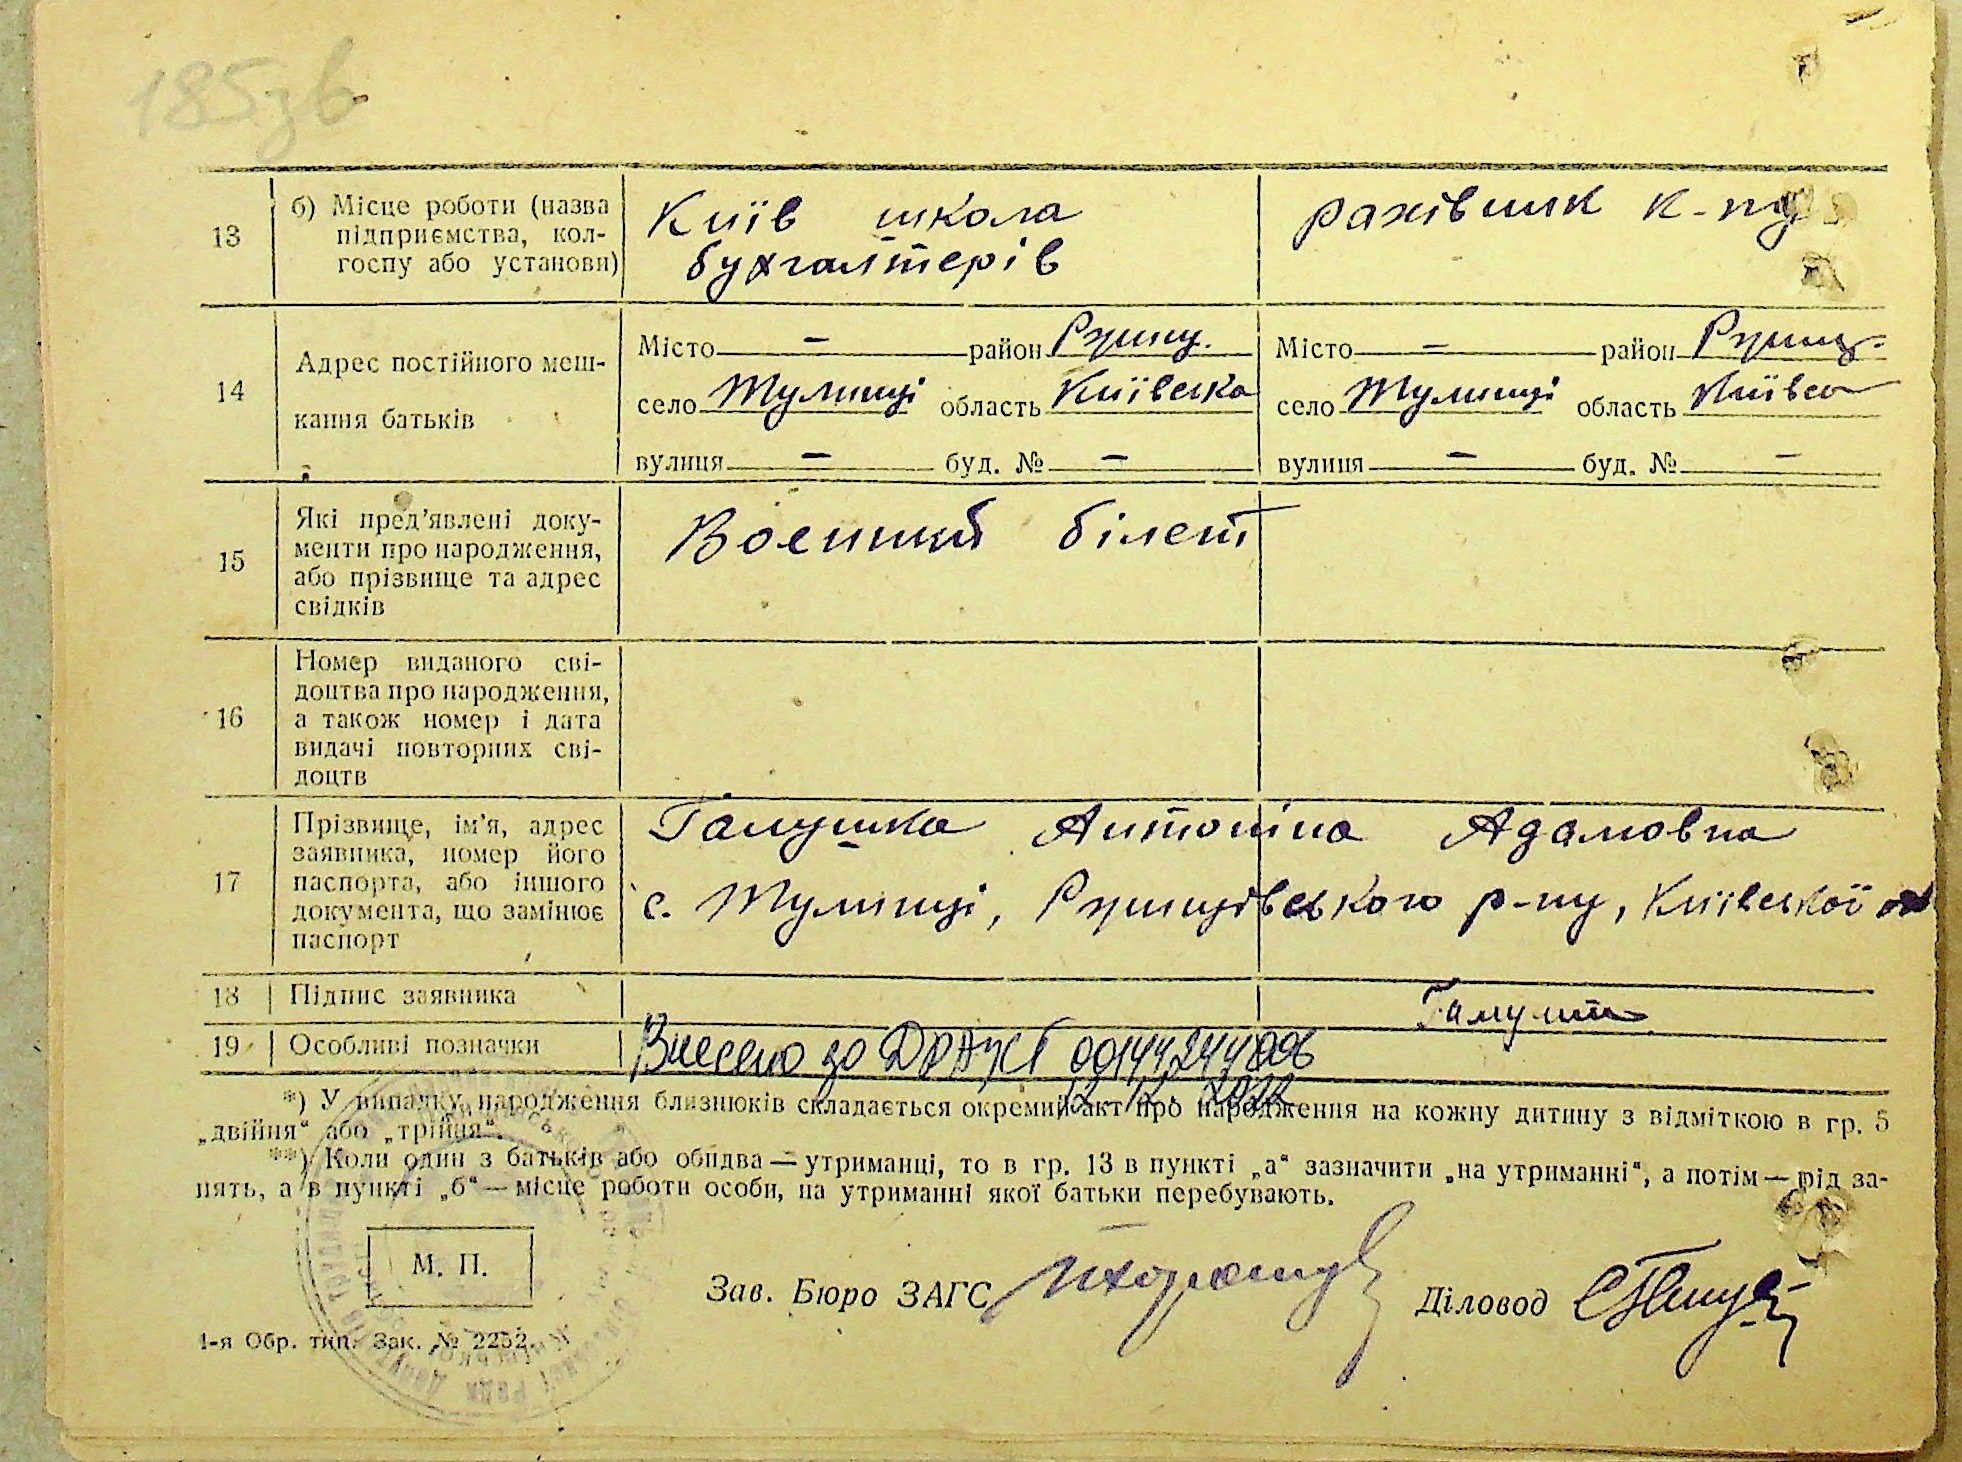 185 зв
13
б) Місце роботи (назва
підприємства, кол-
госпу або установи)
Київ школа
бухгалтерів
рахівник к-пу
14
Адрес постійного меш-
кання батьків
Місто — район Ржищ.
село Тулинці область Київська
вулиця — буд. № —
Місто — район Ржищ.
село Тулинці область Київсь
вулиця — буд. № —
15
Які пред'явлені доку-
менти про народження,
або прізвище та адрес
свідків
Воєнний білет
16
Номер виданого сві-
доцтва про народження,
а також номер і дата
видачі повторних сві-
доцтв
17
Прізвище, ім'я, адрес
заявника, номер його
паспорта, або іншого
документа, що замінює
паспорт
Галушка Антоніна Адамовна
с. Тулинці, Ржищівського р-ну, Київської об
18
Підпис заявника
Галушка
19
Особливі позначки
Внесено до ДРАЦСГ 00144244006
12. 12. 2022
*) У випадку народження близнюків складається окремий акт про народження на кожну дитину з відміткою в гр. 5
„двійня“ або „трійня“.
**) Коли один з батьків або обидва — утриманці, то в гр. 13 в пункті „а“ зазначити „на утриманні“, а потім — рід за-
нять, а в пункті „б“ — місце роботи особи, на утриманні якої батьки перебувають.
М. П.
Зав. Бюро ЗАГС
Діловод
4-я Обр. тип. Зак. № 2252.